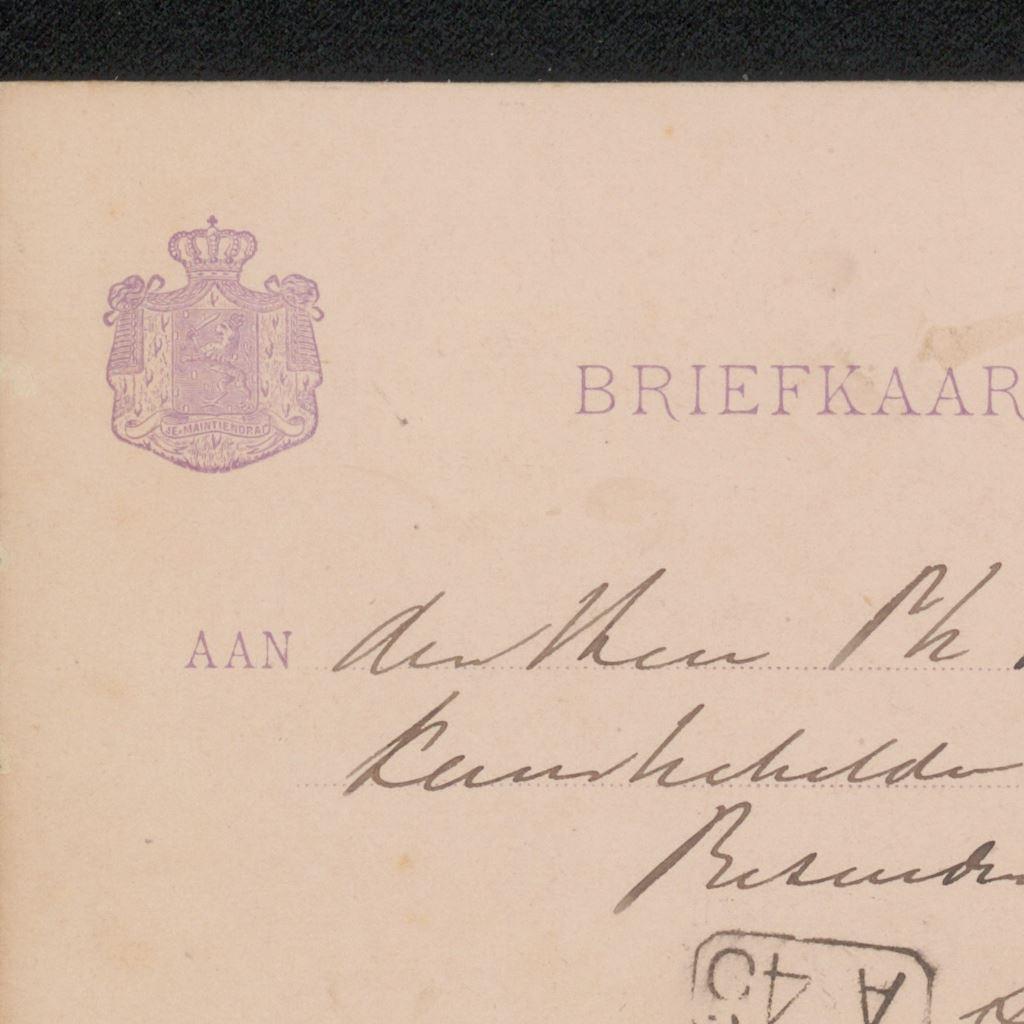 JE·MAINTIENDRAI
BRIEFKAAR
AAN den Heer Ph
Kunstschilder
A 45